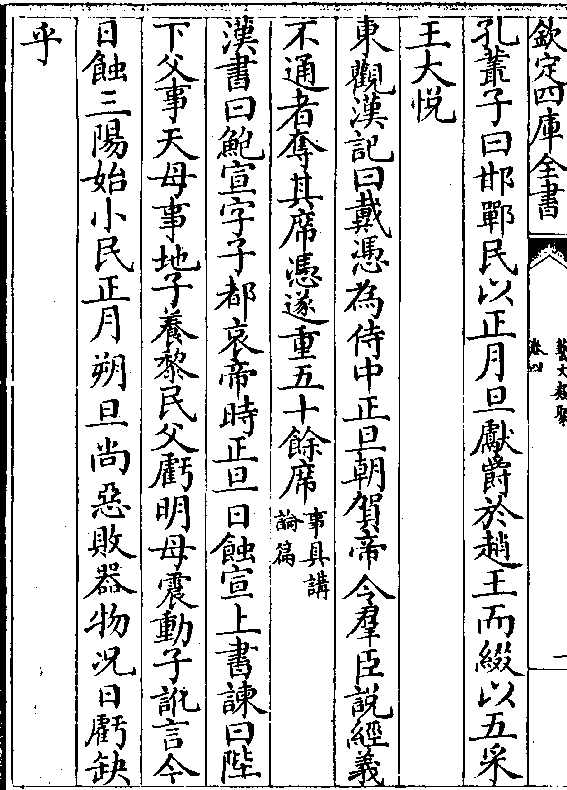 欽定四庫全書
藝文類聚
卷四
孔叢子曰邯鄲民以正月旦獻爵於趙王而綴以五采
王大悅
東觀漢記曰戴憑為侍中正旦朝賀帝令羣臣說經義
不通者奪其席憑遂重五十餘席事具講論篇
漢書曰鮑宣字子都哀帝時正旦日蝕宣上書諫曰陛
下父事天母事地子養黎民父虧明母震動子訛言今
日蝕三陽始小民正月朔旦尚惡敗器物况日虧缺
乎